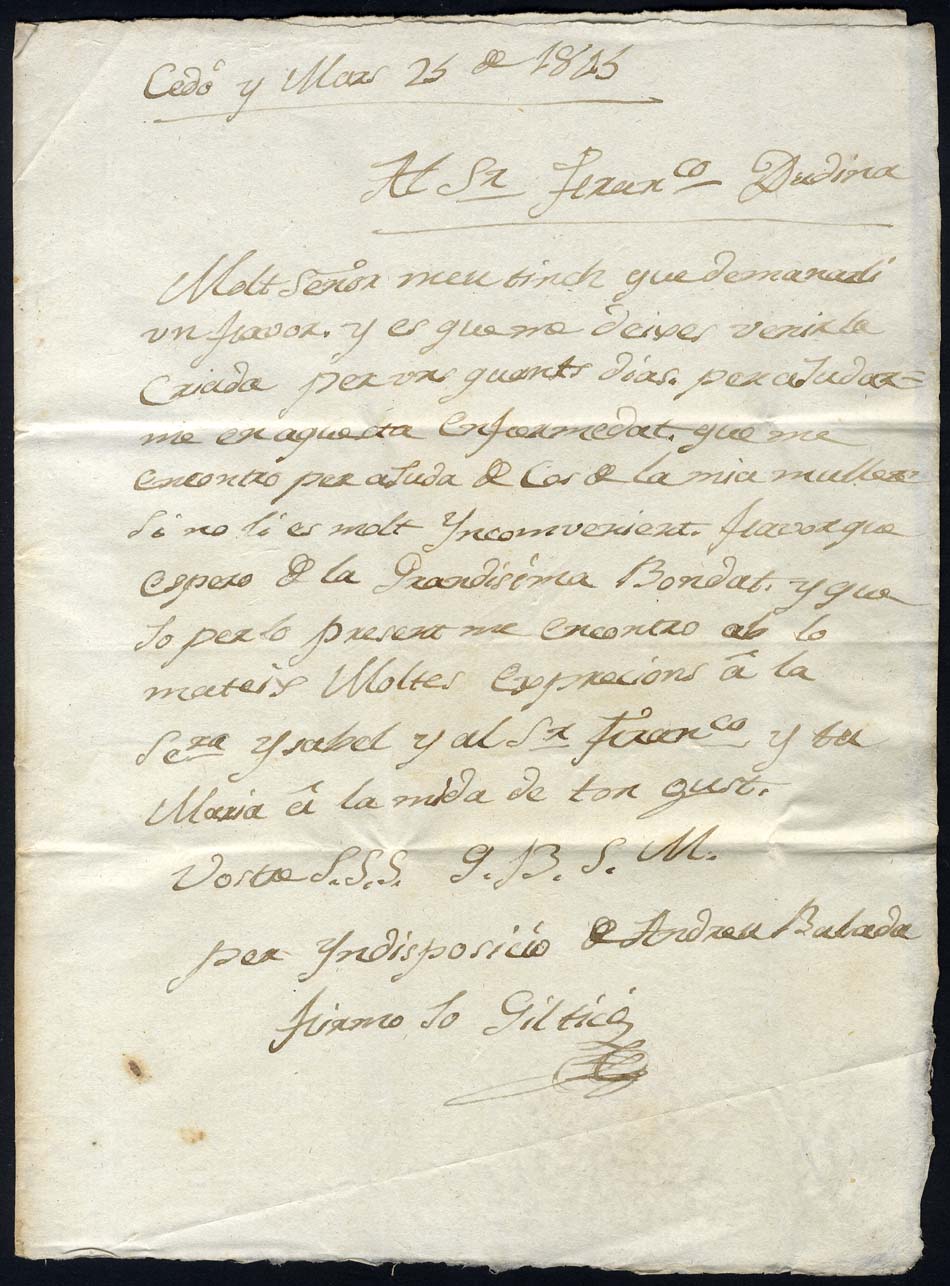 Cedó y Mars 25 de 1845
Al Sr Franco Dudina
Molt Señor meu tinch que demanarli
un favor. y es que me deixes venir la
Criada per uns quants dias. per aJudar=
me en aquesta Enfermedat. que me
encontro per aJuda de Cos de la mia muller
Si no li es molt Ynconvenient. favor que
espero de la Grandisima Bondat. y que
Jo per lo present me encontro ab lo
mateix Moltes Exprecions á la
Sera Ysabel y al Sr Franco y tu
Maria á la mida de ton gust.
Voste S.S.S. Q. B. S. M.
per Yndisposició de Andreu Balada
firmo Jo Gil Ticó